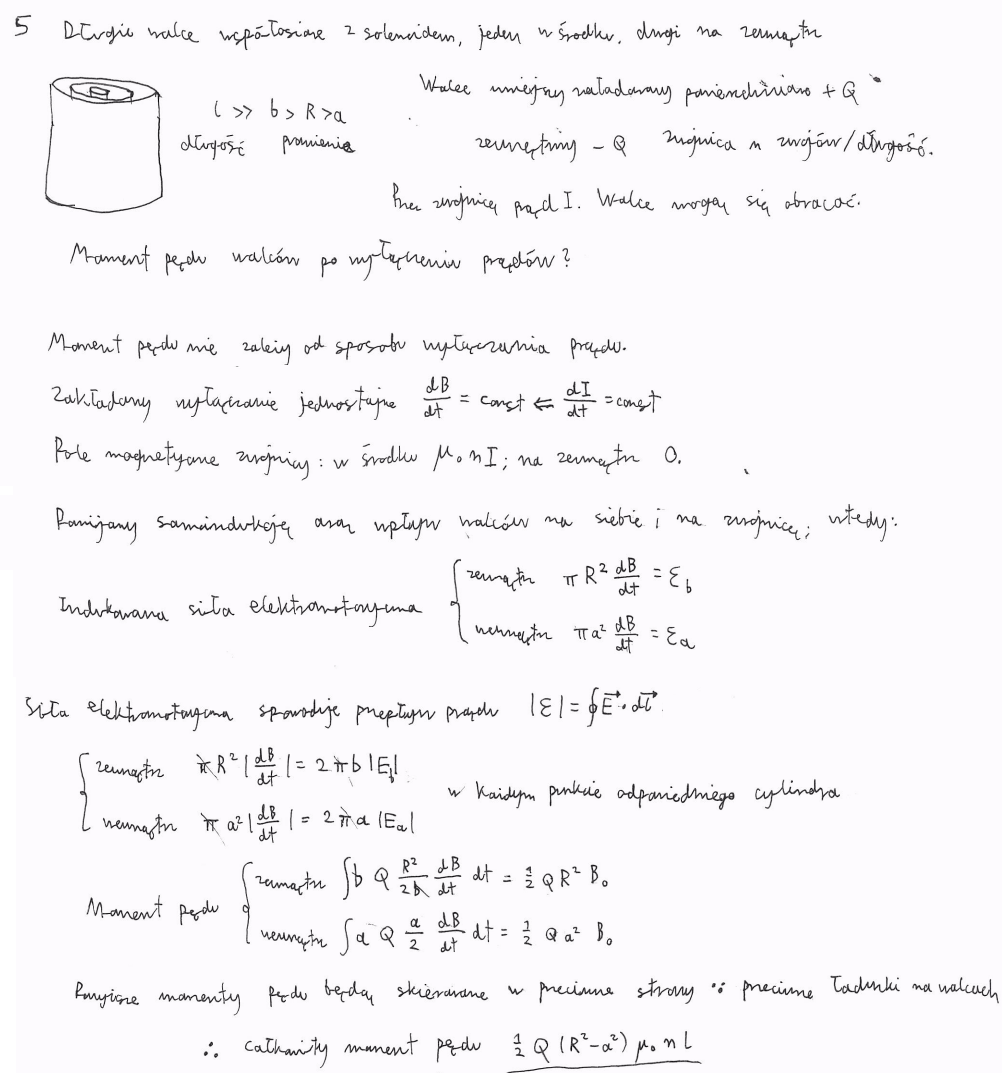 5 Długie walce współosiowe z solenoidem, jeden w środku, drugi na zewnątrz
l >> b > R > a
długość promienie
Walec mniejszy naładowany powierzchniowo + Q
zewnętrzny - Q zwojnica n zwojów/długość.
Przez zwojnicę prąd I. Walce mogą się obracać.
Moment pędu walców po wyłączeniu prądów?
Moment pędu nie zależy od sposobu wyłączania prądu.
Zakładamy wyłączanie jednostajne dB/dt = const ⇐ dI/dt = const
Pole magnetyczne zwojnicy: w środku μ₀nI; na zewnątrz 0.
Pomijamy samoindukcję oraz wpływ walców na siebie i na zwojnicę; wtedy:
Indukowana siła elektromotoryczna { zewnątrz πR² dB/dt = Ɛ_b
wewnątrz πa² dB/dt = Ɛ_a
Siła elektromotoryczna spowoduje przepływ prądu |Ɛ| = ∮E⃗·dl⃗
{ zewnątrz πR² |dB/dt| = 2πb |E_b|
wewnątrz πa² |dB/dt| = 2πa |E_a|
w każdym punkcie odpowiedniego cylindra
Moment pędu { zewnątrz ∫b Q R²/2b dB/dt dt = ½ QR² B₀
wewnątrz ∫a Q a/2 dB/dt dt = ½ Qa² B₀
Powyższe momenty pędu będą skierowane w przeciwne strony ∵ przeciwne ładunki na walcach
∴ całkowity moment pędu ½ Q (R²-a²) μ₀ n I